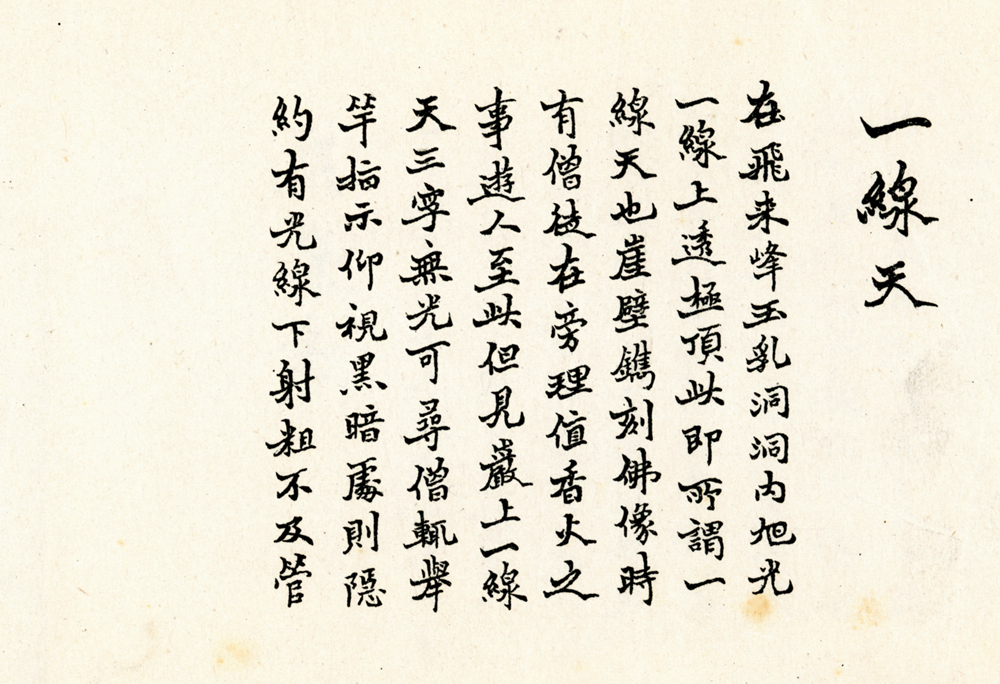 一線天
在飛来峰玉乳洞洞内旭光
一線上透極頂此即所謂一
線天也崖壁鐫刻佛像時
有僧徒在旁理值香火之
事遊人至此但見巖上一線
天三字無光可尋僧輒舉
竿指示仰視黑暗處則隱
約有光線下射粗不及管